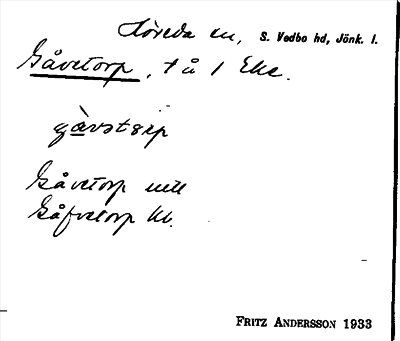 Höreda sn, S. Vedbo hd, Jönk. l.
Gåvetorp, t å 1 Eke.
gàvətərp
Gåvetorp
Gåfvetorp kb.
FRITZ ANDERSSON 1933